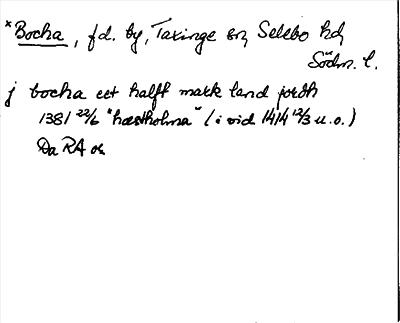 *Bocha, fd. by, Taxinge sn, Selebo hd,
Södm. l.
j bocha eet halfft mark land jordh
1381 22/6 "hæstholma" (i vid 1414 12/3 u.o.)
Da RA or